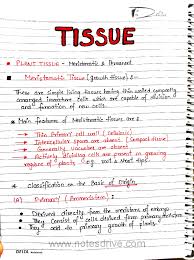 TISSUE
PLANT TISSUE - Meristematic & Permanent
Meristematic Tissue (growth tissue) :-
These are simple living tissues having thin walled compactly
arranged immature cells which are capable of division
and formation of new cells.
Main features of Meristematic tissues are :-
Thin Primary cell wall (Cellulosic)
Intercellular spaces are absent (Compact tissue)
Generally vacuoles are absent
Actively dividing cells are present on growing
regions of plants e.g., root & shoot tips.
Classification on the Basis of Origin
(A) Primary (Promeristem) :
Derived directly from the meristems of embryo
They consist of cells derived from primary meristem
They add to primary growth of plants.
www.notesdrive.com